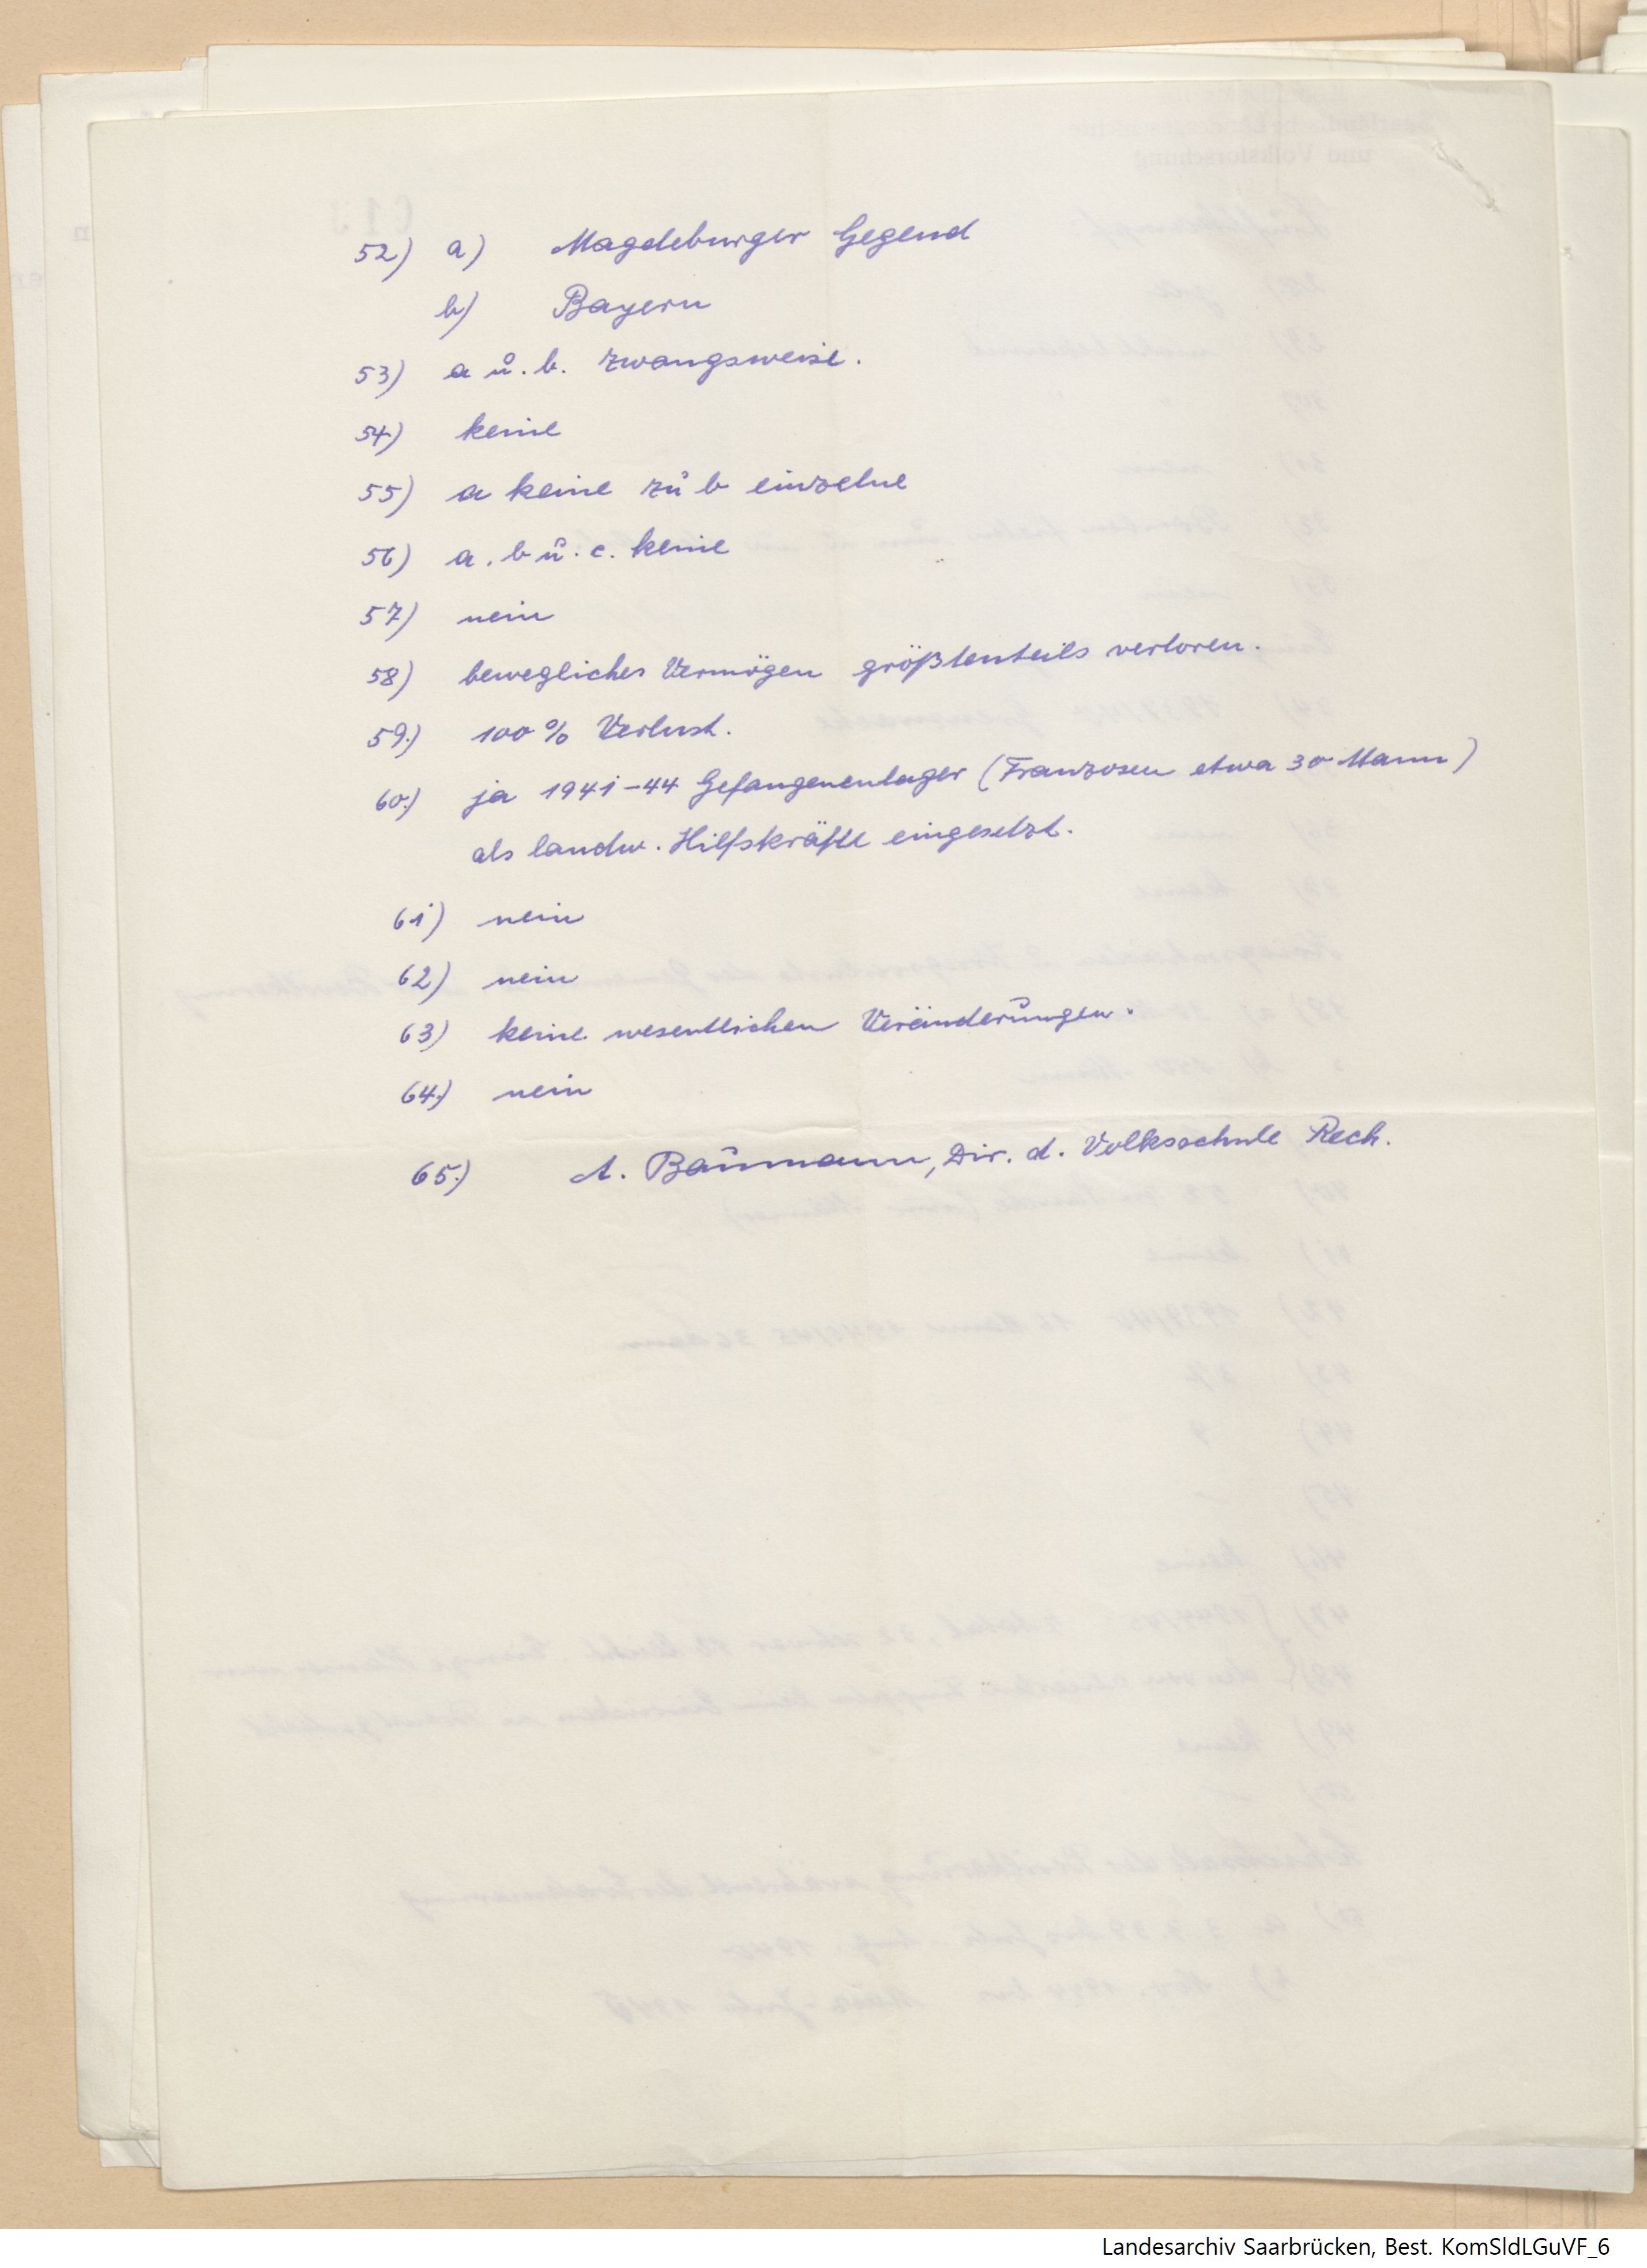 52) a) Magdeburger Gegend
b) Bayern
53) a u. b. zwangsweise.
54) keine
55) a keine zu b einzelne
56) a. b u. c. keine
57) nein
58) bewegliches Vermögen größtenteils verloren.
59.) 100 % Verlust.
60.) ja 1941-44 Gefangenenlager (Franzosen etwa 30 Mann)
als landw. Hilfskräfte eingesetzt.
61) nein
62) nein
63) keine wesentlichen Veränderungen.
64.) nein
65.) A. Baumann, Dir. d. Volksschule Rech.
Landesarchiv Saarbrücken, Best. KomSldLGuVF_6